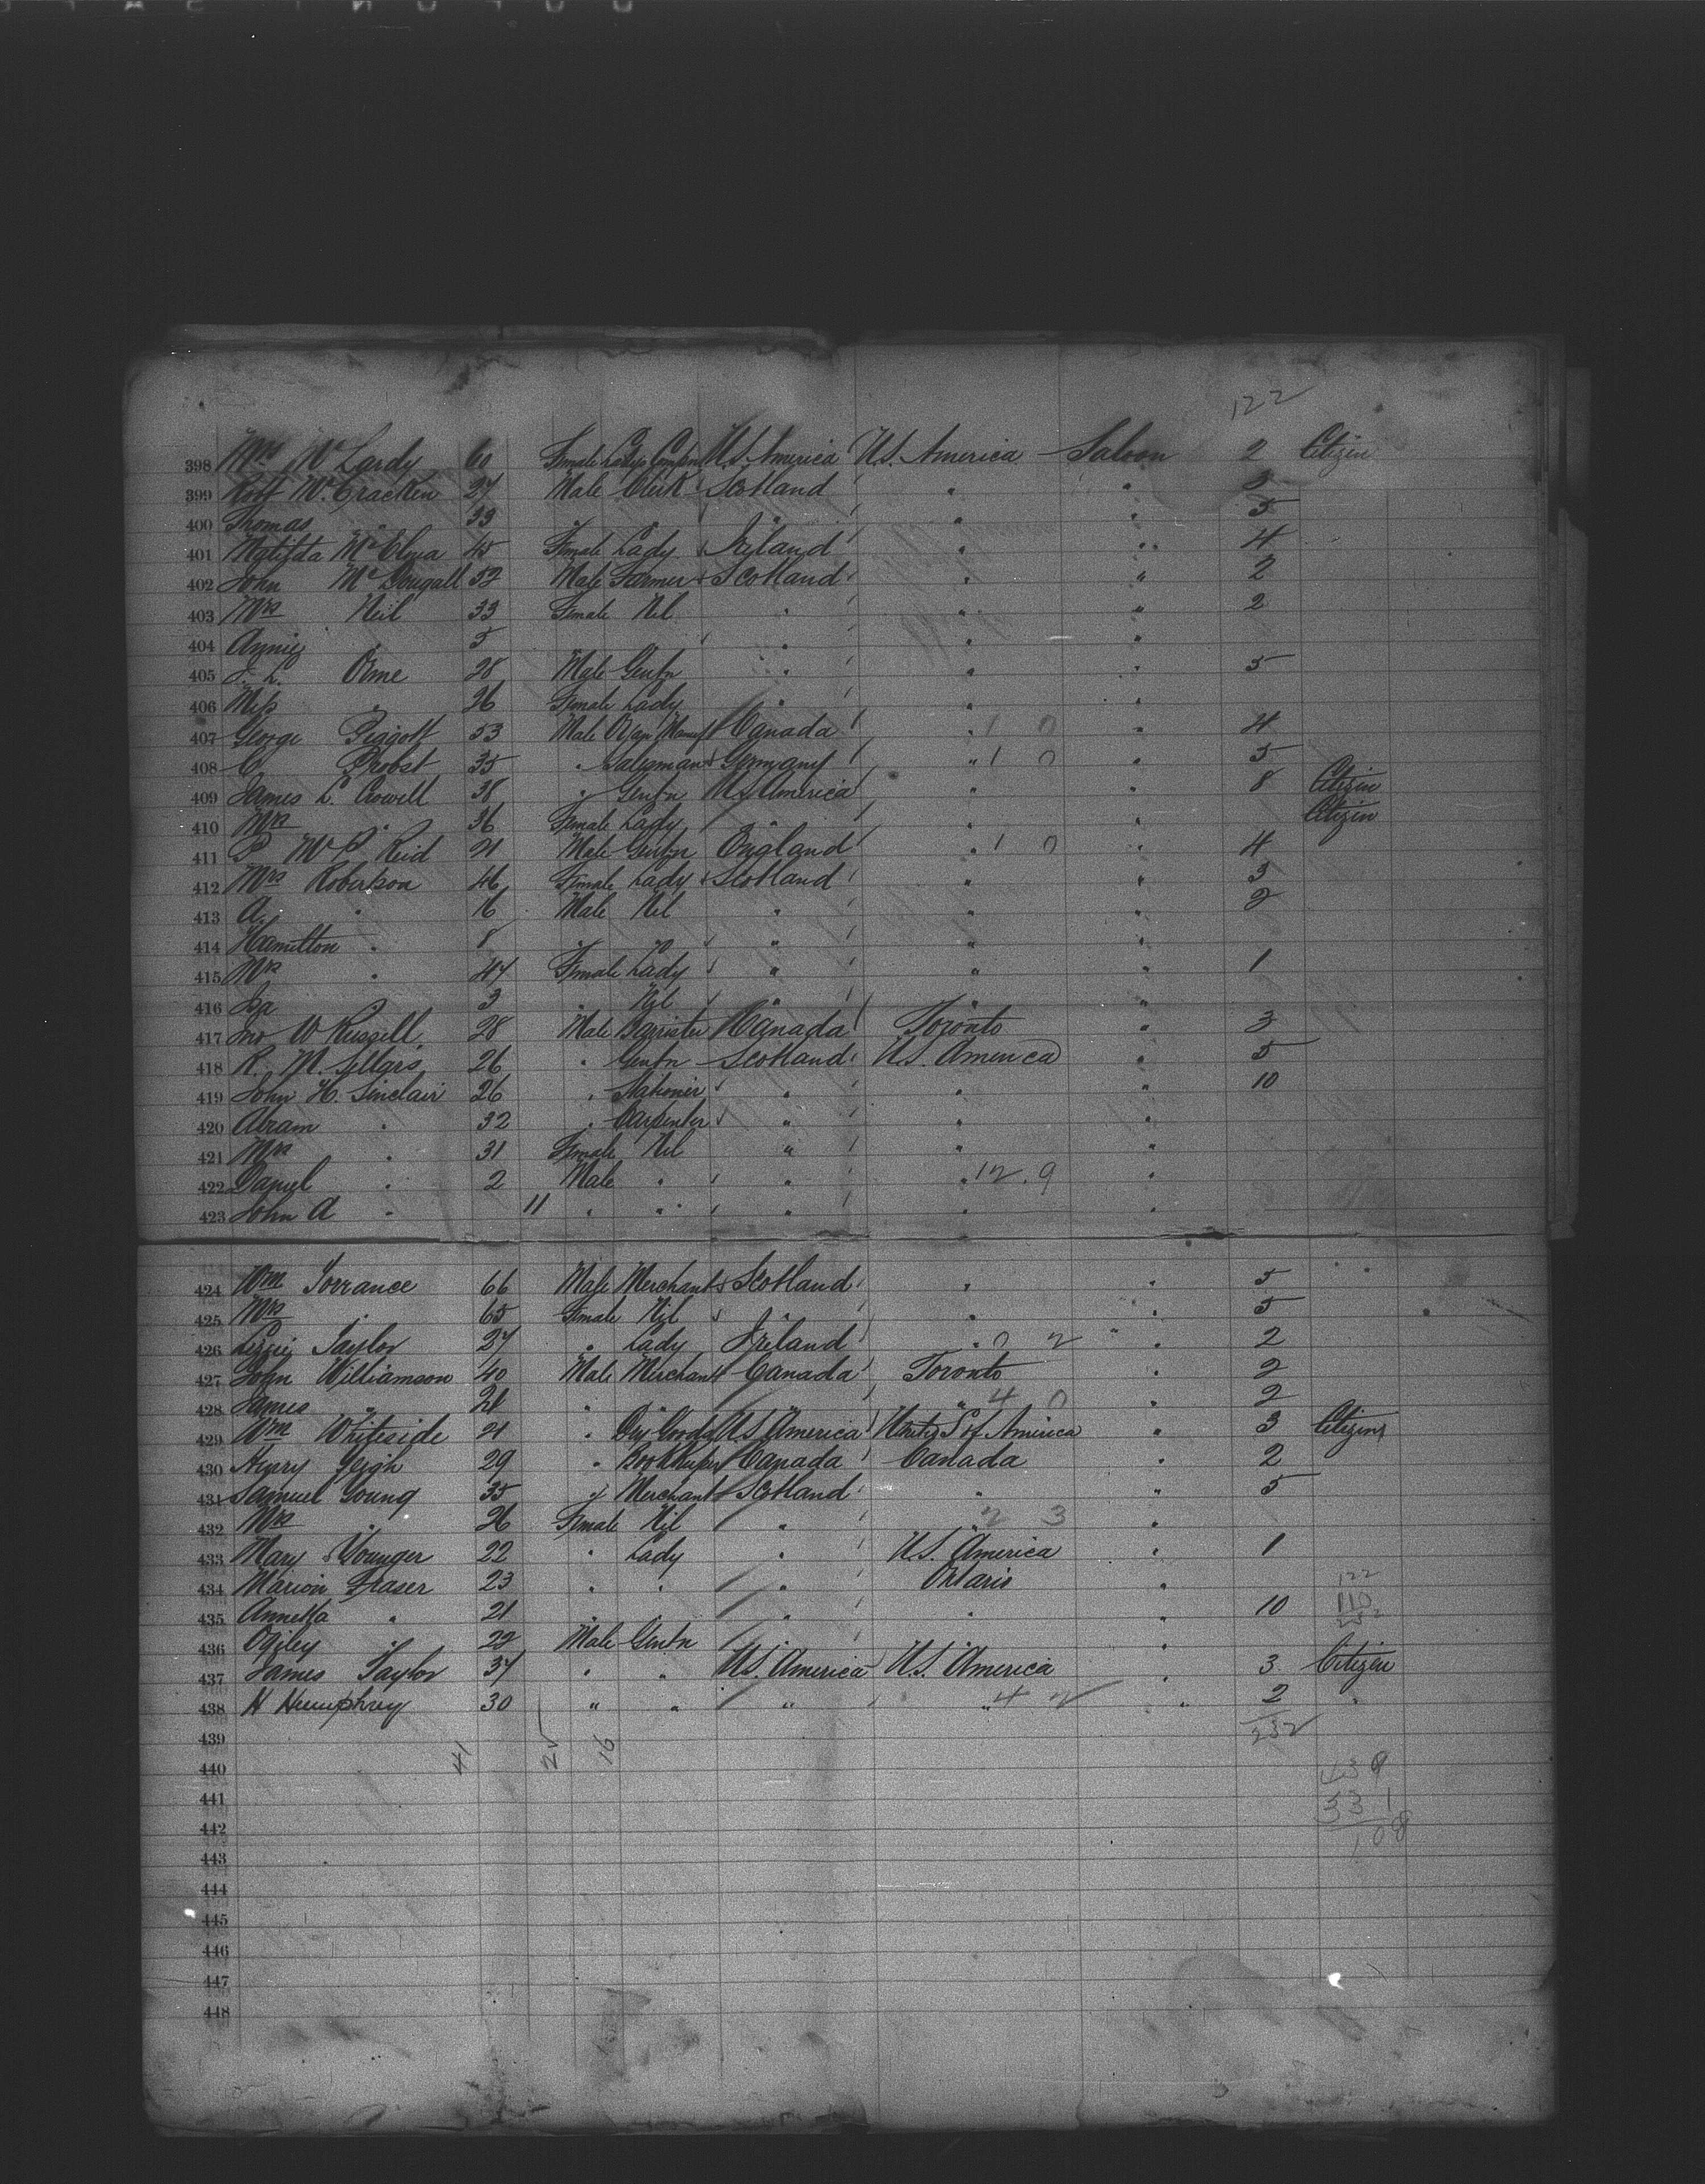 122
398 Mrs McLardy 60 Female Ladys Compn U.S. America U.S. America Saloon 2 Citizen
399 Robt McCracken 27 Male Clerk Scotland " " 3
400 Thomas " 33 " " " " " 5
401 Matilda McElwa 45 Female Lady Ireland " " 4
402 John McDougall 52 Male Farmer Scotland " " 2
403 Mrs Neil 33 Female Nil " " " 2
404 Annie " 5 " " "
405 J. L. Orme 28 Male Gentn " " " 5
406 Miss " 36 Female Lady " " "
407 George Piggott 53 Male Organ Manuf Canada " 1 0 " 4
408 C Probst 35 " Salesman Germany " 1 0 " 5
409 James L. Crowell 38 " Gentn U.S. America " " 8 Citizen
410 Mrs " 36 Female Lady " " " Citizen
411 P McP Reid 21 Male Gentn England " 1 0 " 4
412 Mrs Robertson 46 Female Lady Scotland " " 3
413 A. " 16 Male Nil " " " 2
414 Hamilton " 8 " " " " "
415 Mrs " 47 Female Lady " " " 1
416 Isa 3 Nil " " "
417 Jno W Russell 28 Male Barrister Canada Toronto " 3
418 R. M. Sellars 26 " Gentn Scotland U.S. America " 5
419 John H. Sinclair 26 " Stationer " " " 10
420 Abram " 32 " Carpenter " " "
421 Mrs " 31 Female Nil " " "
422 Daniel " 2 Male " " " 12 . 9 "
423 John A " 11 " " " " "
424 Wm Torrance 66 Male Merchant Scotland " " 5
425 Mrs " 65 Female Nil " " 5
426 Lizzie Taylor 27 " Lady Ireland " 0 2 " " 2
427 John Williamson 40 Male Merchant Canada Toronto " 2
428 James " 21 " " " 4 0 " 2
429 Wm Whiteside 21 " Dry Goods U.S. America United S of America " 3 Citizen
430 Henry Leigh 29 " Bookkeeper Canada Canada " 2
431 Samuel Young 35 " Merchant Scotland " " 5
432 Mrs " 26 Female Nil " " 2 3 "
433 Mary Younger 22 " Lady " U.S. America " 1
434 Marion Fraser 23 " " " Ontario " 122
435 Annetta " 21 " " " " 10 110
436 Ogiley " 22 Male Gentn " " "
437 James Taylor 37 " " U.S. America U.S. America " 3 Citizen
438 H Humphrey 30 " " " " 4 2 " 2 "
439 232
41 25 16
440 439
441 331
442 108
443
444
445
446
447
448